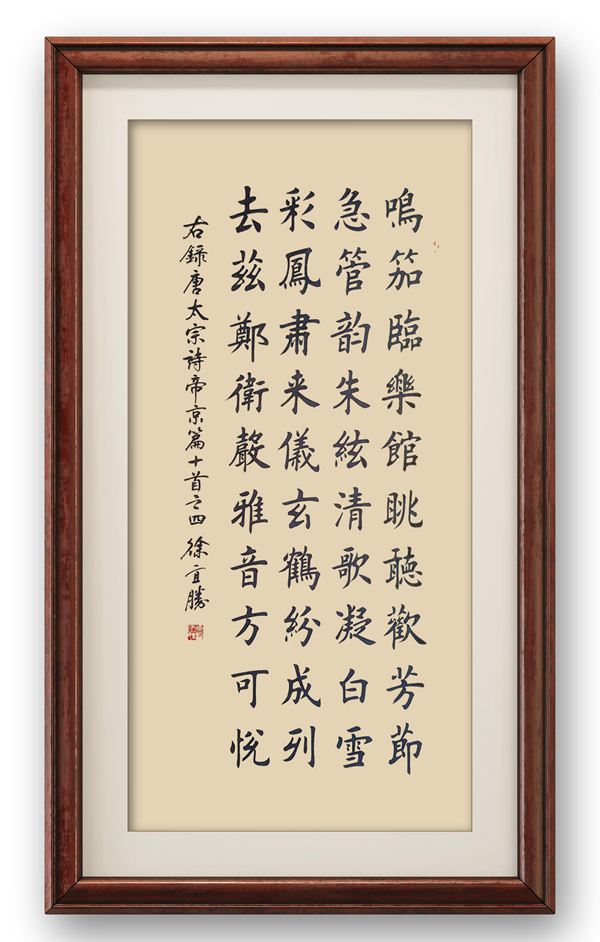 鳴笳臨樂館眺聽歡芳節
急管韵朱絃清歌凝白雪
彩鳳肅来儀玄鶴紛成列
去茲鄭衛聲雅音方可悅
右録唐太宗诗帝京篇十首之四 徐宜勝